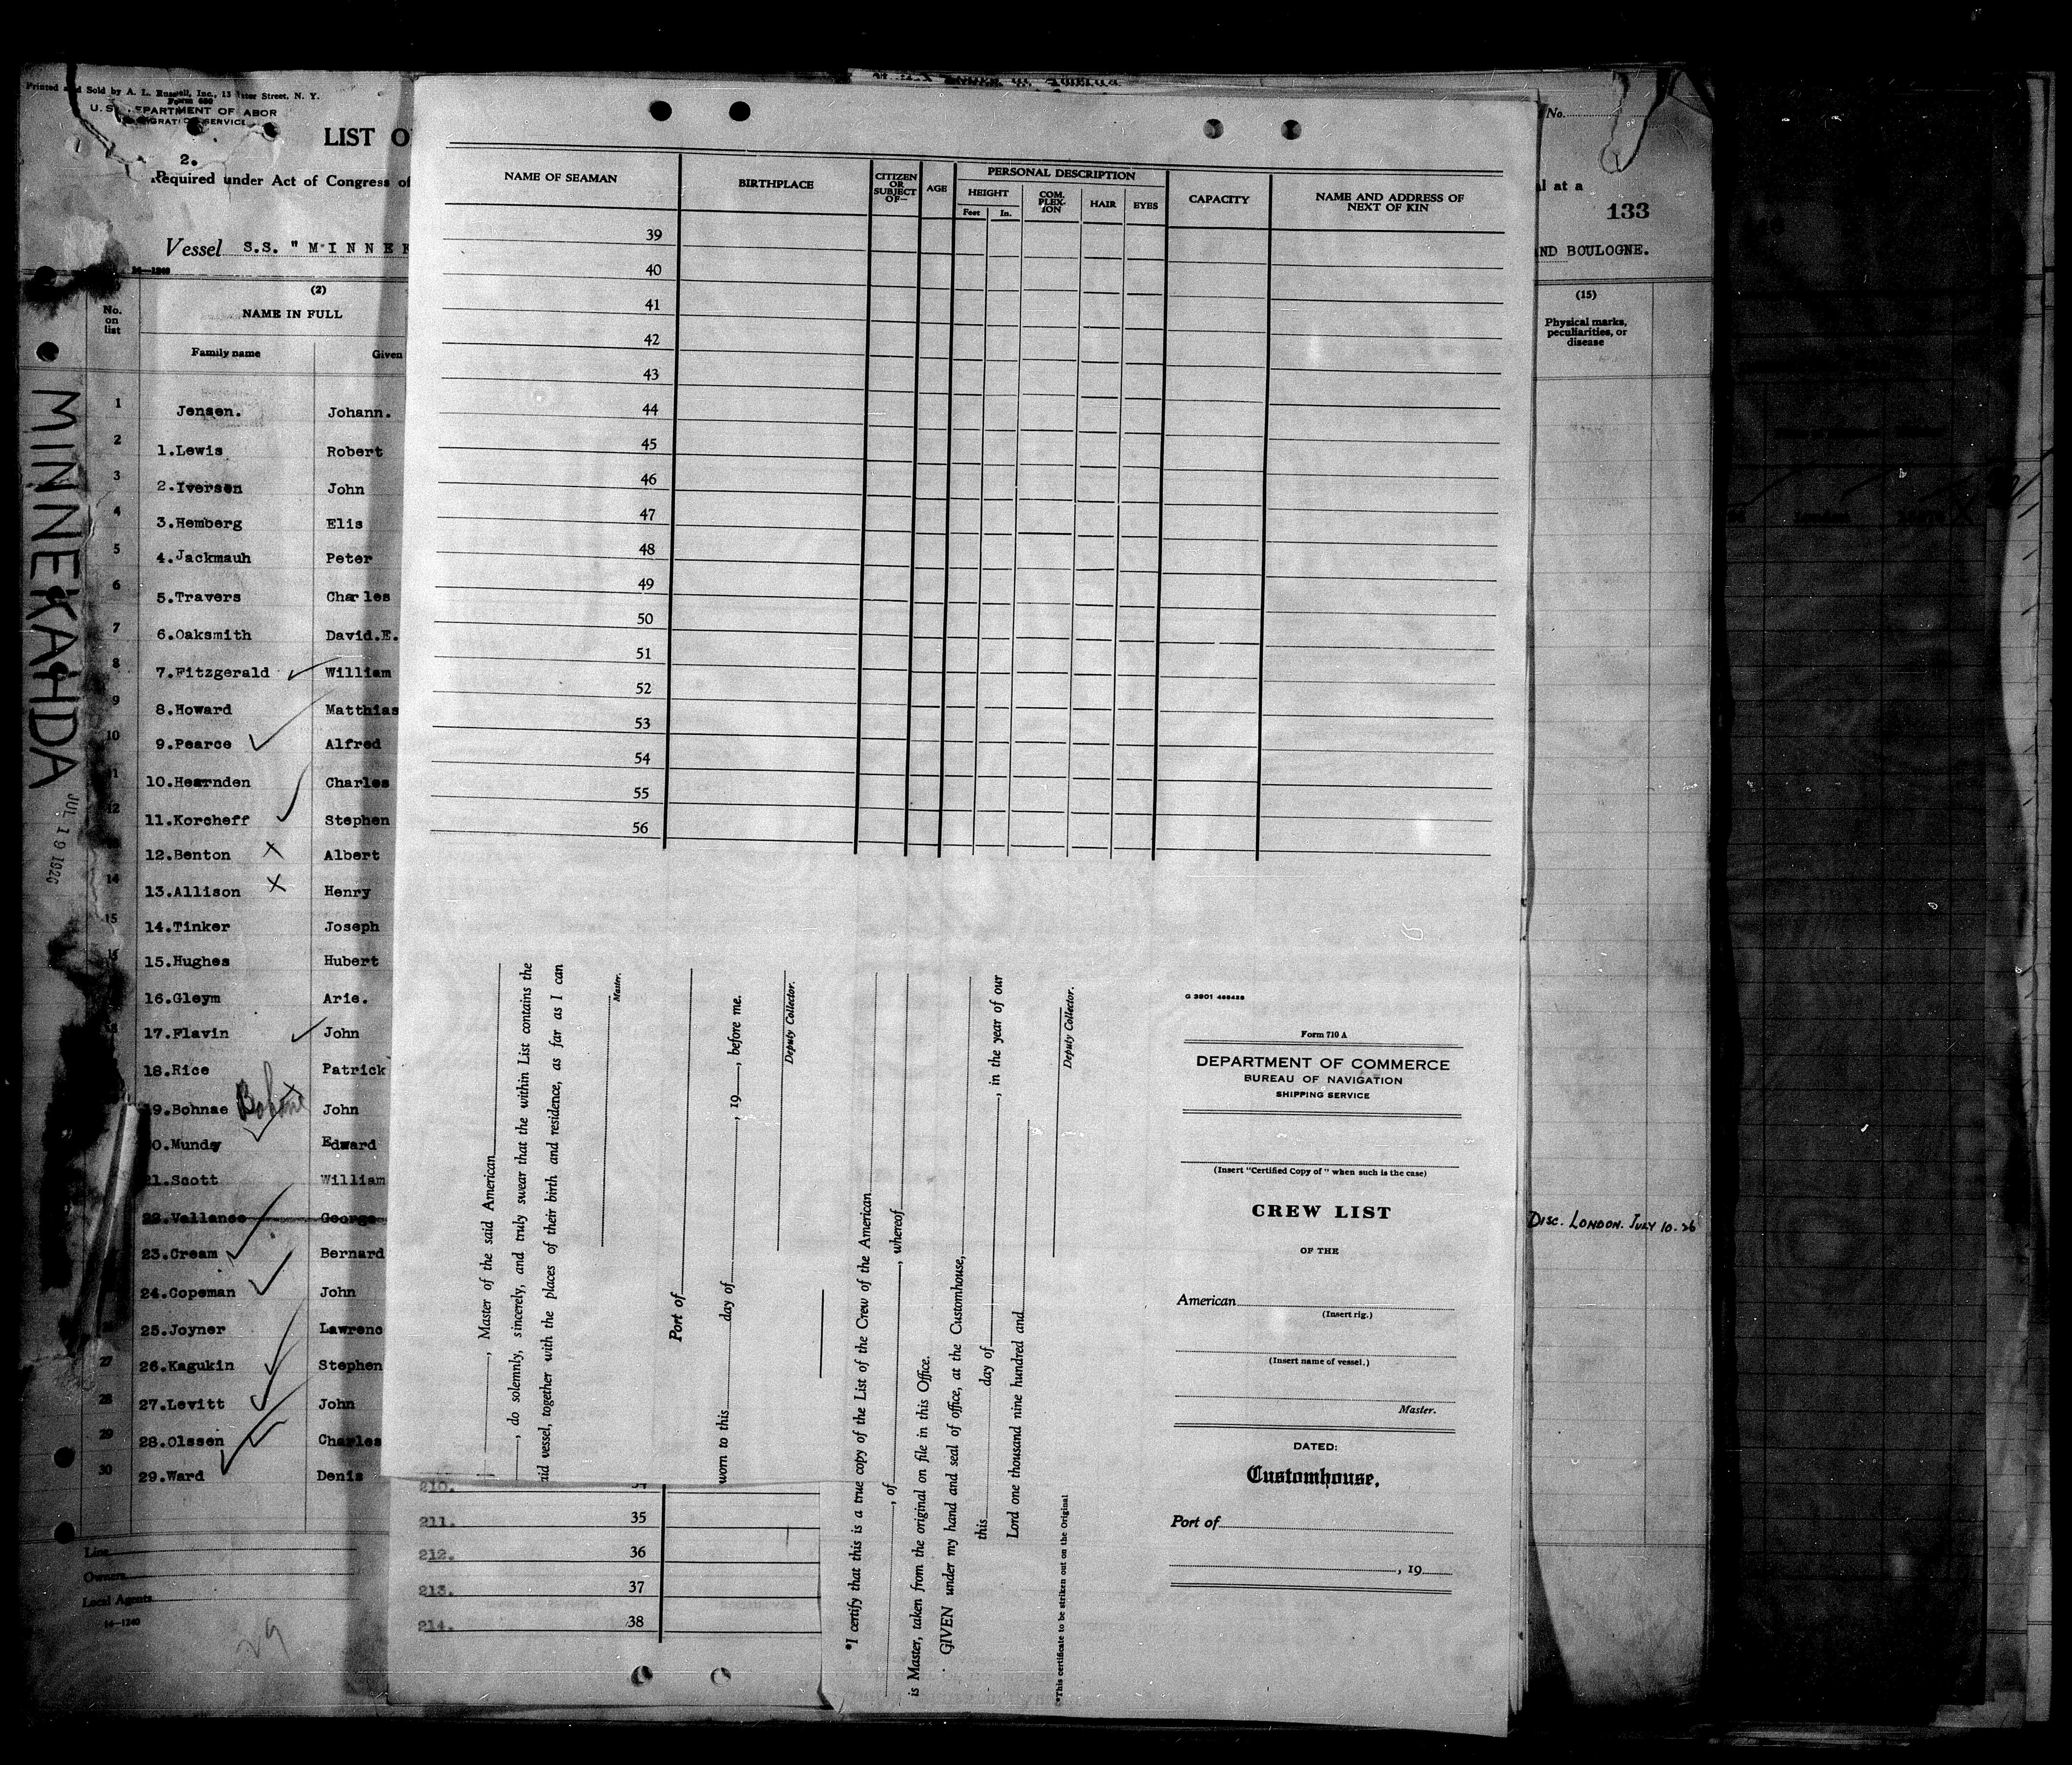 Printed and Sold by A. L. Russell, Inc., 13 Street, N. Y.
Form 680
U. S. DEPARTMENT OF LABOR
IMMIGRATION SERVICE
LIST O
2.
Required under Act of Congress of
Vessel S.S. "MINNEK
14—1240
No. on list
(2)
NAME IN FULL
Family name
Given
1 Jensen. Johann.
2 1.Lewis Robert
3 2.Iversen John
4 3.Hemberg Elis
5 4.Jackmauh Peter
6 5.Travers Charles
7 6.Oaksmith David.E.
8 7.Fitzgerald William
9 8.Howard Matthias
10 9.Pearce Alfred
11 10.Hearnden Charles
12 11.Korcheff Stephen
12.Benton Albert
14 13.Allison Henry
15 14.Tinker Joseph
16 15.Hughes Hubert
16.Gleym Arie.
18 17.Flavin John
18.Rice Patrick
19.Bohnae John
0.Mundy Edward
21.Scott William
22.Vallance George
23.Cream Bernard
24.Copeman John
25.Joyner Lawrenc
27 26.Kagukin Stephen
28 27.Levitt John
29 28.Olssen Charles
30 29.Ward Denis
Line
Owners
Local Agents
14—1240
29
MINNEKAHDA
JUL 19 1926
NAME OF SEAMAN
BIRTHPLACE
CITIZEN OR SUBJECT OF—
AGE
PERSONAL DESCRIPTION
HEIGHT
Feet
In.
COM. PLEX- ION
HAIR
EYES
CAPACITY
NAME AND ADDRESS OF NEXT OF KIN
39
40
41
42
43
44
45
46
47
48
49
50
51
52
53
54
55
56
, Master of the said American
, do solemnly, sincerely, and truly swear that the within List contains the
aid vessel, together with the places of their birth and residence, as far as I can
Master.
Port of
worn to this day of , 19 , before me.
Deputy Collector.
*I certify that this is a true copy of the List of the Crew of the American
, of , whereof
is Master, taken from the original on file in this Office.
GIVEN under my hand and seal of office, at the Customhouse,
this day of , in the year of our
Lord one thousand nine hundred and
Deputy Collector.
*This certificate to be striken out on the Original
G 3901 488428
Form 710 A
DEPARTMENT OF COMMERCE
BUREAU OF NAVIGATION
SHIPPING SERVICE
(Insert "Certified Copy of" when such is the case)
CREW LIST
OF THE
American
(Insert rig.)
(Insert name of vessel.)
Master.
DATED:
Customhouse,
Port of
, 19
210. 34
211. 35
212. 36
213. 37
214. 38
No.
al at a
133
AND BOULOGNE.
(15)
Physical marks, peculiarities, or disease
DISC. LONDON. JULY 10.26